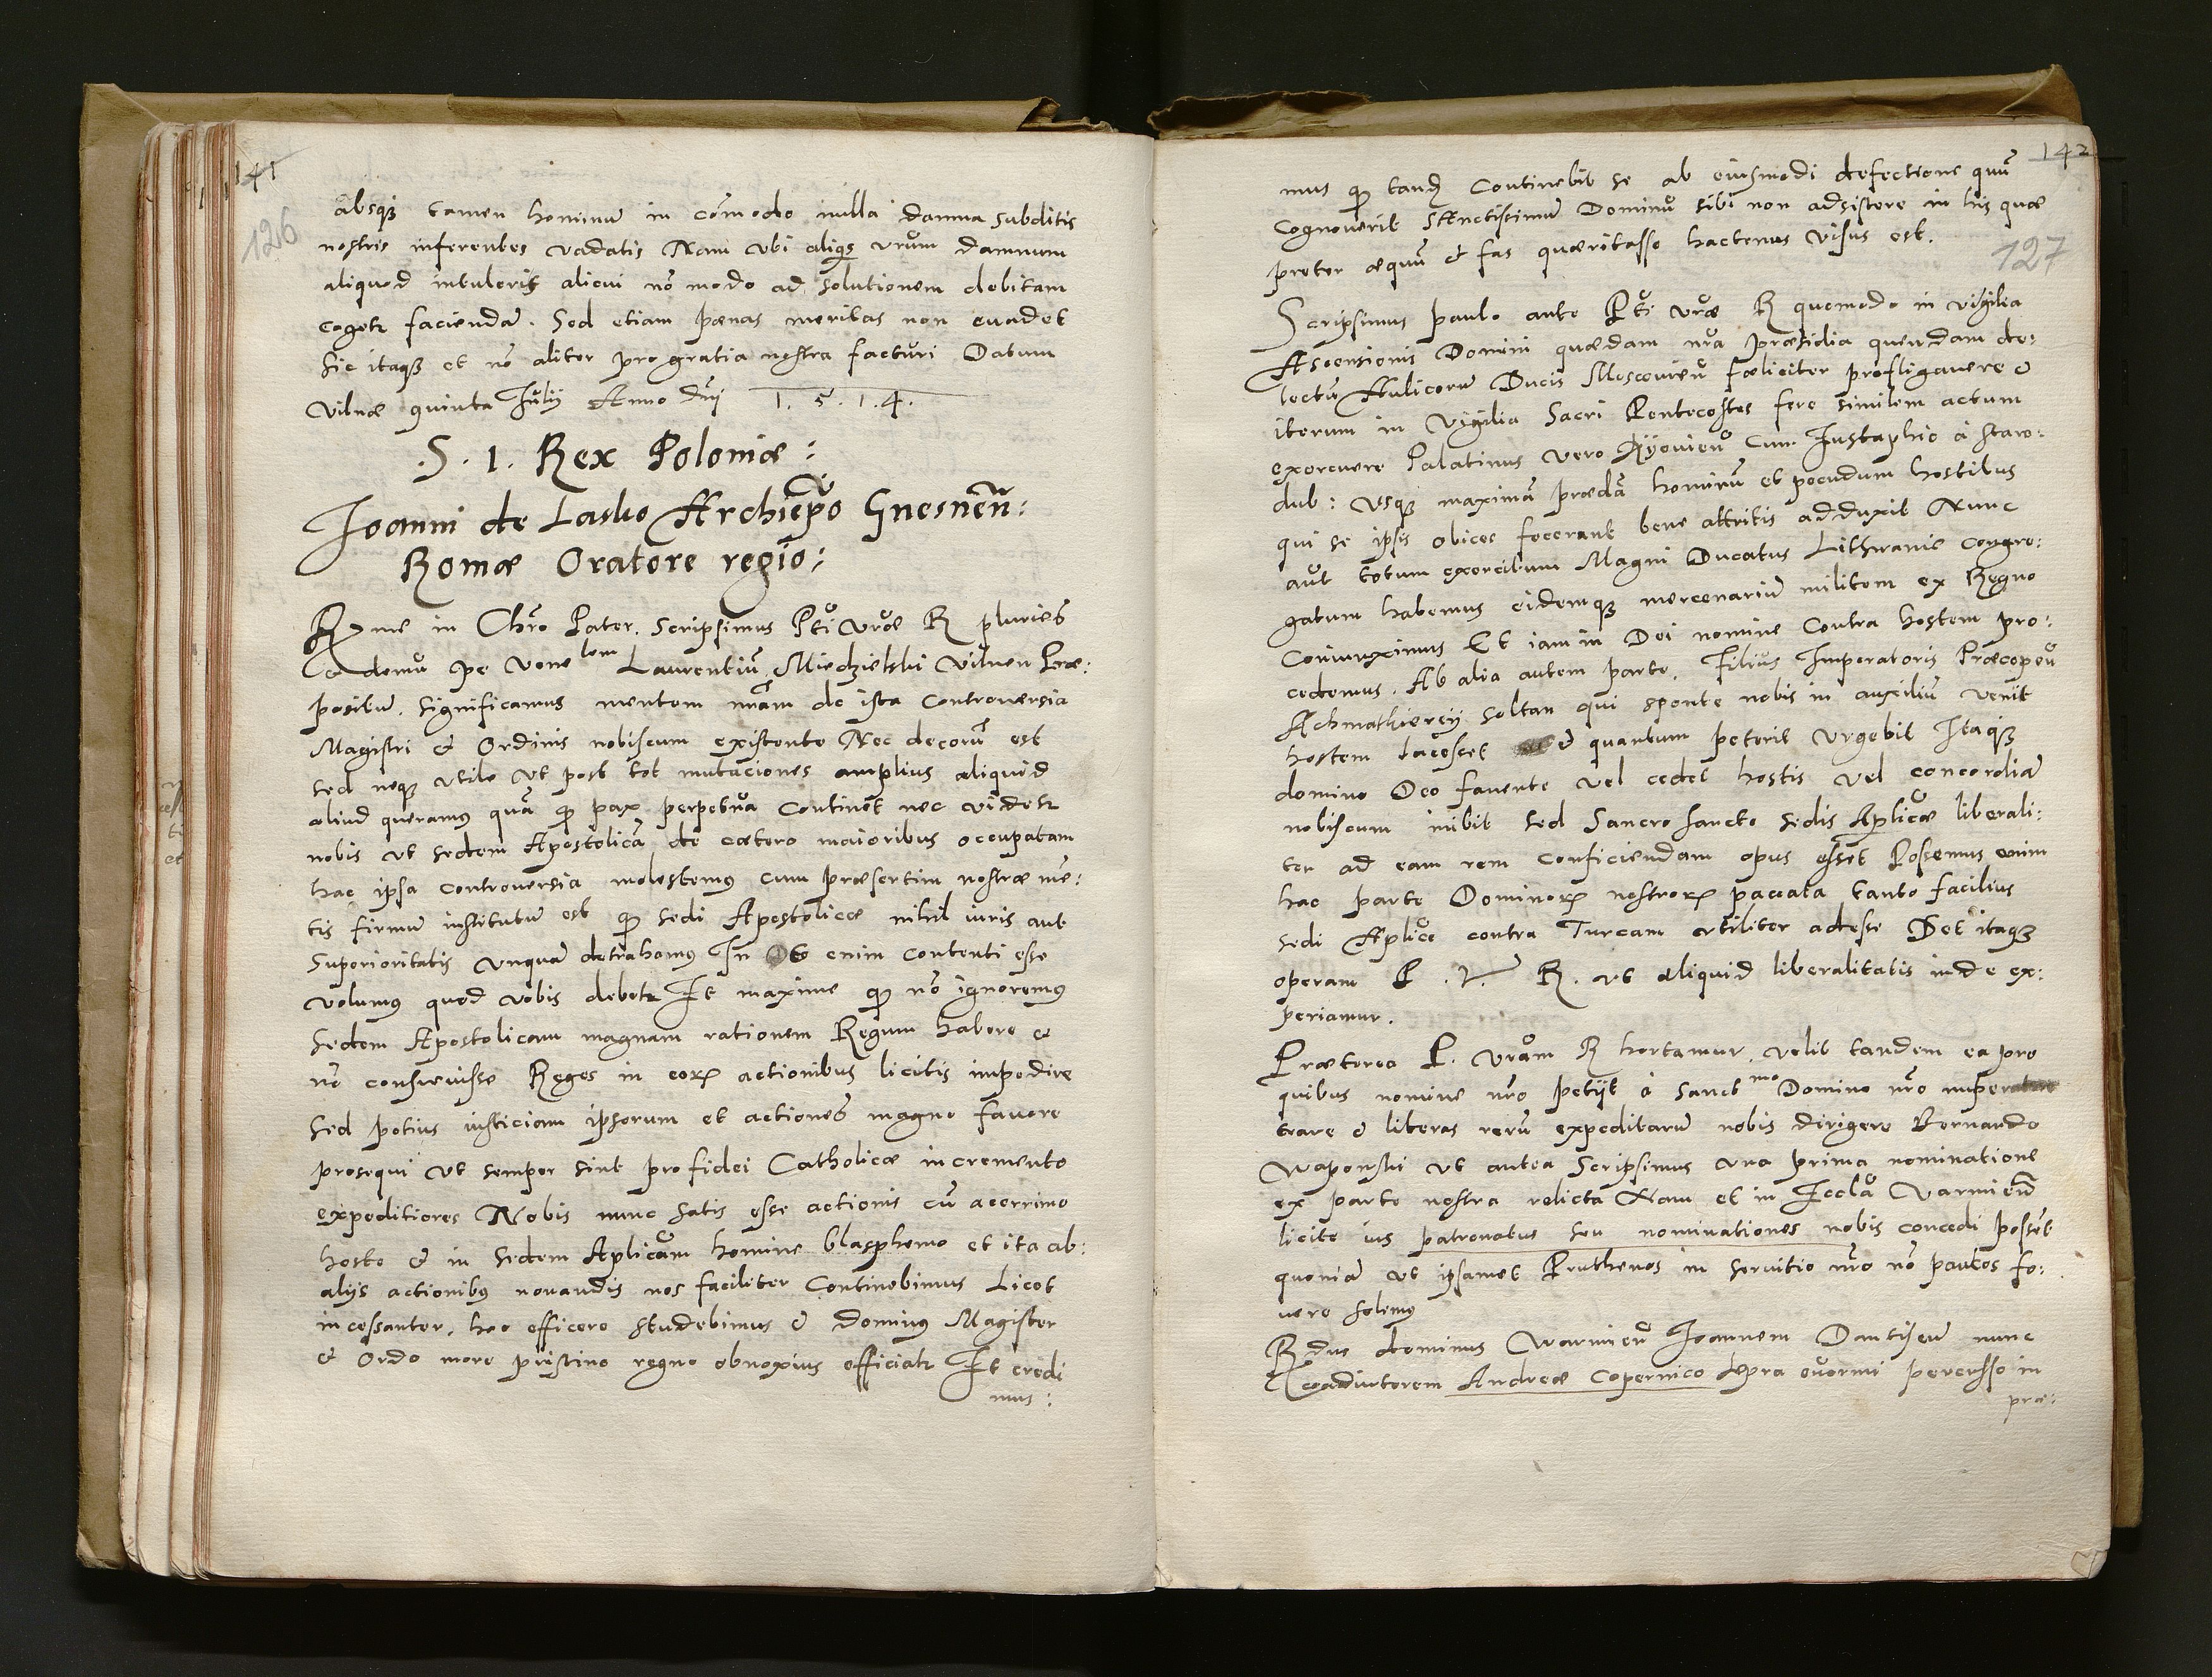 141
126
absq; tamen hominũ in cõmodo nulla damna subditis
nostris inferentes vadatis Nam vbi aliqs vrũm damnum
aliquod intulerit alicui nõ modo ad solutionem debitam
cogetr faciendã. Sed etiam pœnas meritas non euadet
Sic itaq; et nõ aliter pro gratia nostra facturi Datum
Vilnæ quinta Julij Anno Dñj 1.5.1.4.
.S. 1. Rex Poloniæ:
Joanni de Lasko Archiep̃o Gnesneñ:
Romæ Oratore regio:
R me in Chr̃o Pater. Scripsimus Pti vr̃æ R pluries
& demũ pe vene lem Laurentiũ Miedzielski Vilnen Præ:
positũ. Significamus mentem nr̃am de ista Controuersia
Magistri & Ordinis nobiscum existente Nec decorũ est
sed neq; vtile vt post tot mutaciones amplius aliquid
aliud queramus quã qz pax perpetua Continet nec videtr
nobis vt sedem Apostolicã de cætero maioribus occupatam
hac ipsa controuersia molestemus cum præsertim nostræ mẽ:
tis firmũ institutũ est qz sedi Apostolicæ nihil iuris aut
Superioritatis vnquã detrahemus In eo enim contenti esse
volumus quod vobis debetr Et maxime qz nõ ignoremus
Sedem Apostolicam magnam rationem Regum habere &
nõ consueuisse Reges in eorz actionibus licitis impedire
Sed potius iusticiam ipsorum et actiones magno fauore
prosequi vt semper sint pro fidei Catholicæ incremento
expeditiores Nobis nunc satis esse actionis cũ acerrimo
hoste & in Sedem Aplicam homine blasphemo et ita ab:
alijs actionibus nouandis nos faciliter Continebimus Licet
incessanter, hoc efficere studebimus & dominus Magister
& Ordo more pristino regno obnoxius efficiatr Et credi
mus:
142
127
mus qz tandz Continebit se ab eiusmodi defectione quũ
Cognouerit SAnctissimũ Dominũ sibi non adsistere in his quæ
preter æquũ & fas quæritasse hactenus visus est.
Scripsimus paulo ante Pti vræ R quomodo in vigilia
AScensionis Domini quædam nr̃a præsidia quendam de:
lectũ Aulicorũ Ducis Moscouieñ fœliciter profligauere &
iterum in Vigilia Sacri Pentecostes fere similem actum
exercuere Palatinus vero Kyouieñ Cum Eustaphio à staro:
dub: vsq; maximã prædã hominũ et pecudum hostibus
qui se ipsis obices fecerant bene attritis adduxit Nunc
aut totum exercitum Magni Ducatus Lithwanie congre:
gatum habemus eidemq; mercenariũ militem ex Regno
Coniunximus Et iam in Dei nomine Contra hostem pro:
cedemus. Ab alia autem parte, Filius Imperatoris Præcopeñ
Achmathierej soltan qui sponte nobis in auxiliũ venit
hostem lacesset & quantum poterit vrgebit Itaq;
domino Deo fauente vel cedet hostis vel concordiã
nobiscum inibit Sed Sancro sancte sedis Aplicæ liberali:
ter ad eam rem conficiendam opus esset Possemus enim
hac parte Dominorz nostrorz paccata tanto facilius
sedi Aplice contra Turcam vtiliter adesse Det itaq;
operam P .V. R. vt aliquid liberalitatis inde ex:
periamur.
Præterea P. vram R hortamur. velit tandem ea pro
quibus nomine nr̃o petijt à Sanct mo Domino nr̃o
trare & literas rerũ expeditarũ nobis dirigere Bernando
Waponski vt antea Scripsimus vna prima nominatione
ex parte nostra relicta Nam et in Eccla Varmieñ
licite ius patronatus seu nominationes nobis concedi posset
quoniã vt ipsamet Pruthenos in seruitio nr̃o nõ paucos fo:
uere solemus
Rdus dominus Warmieñ Joannem Dantiscũ nunc
coadiutorem Andreæ Copernico lepra enormi percusso in
præ: